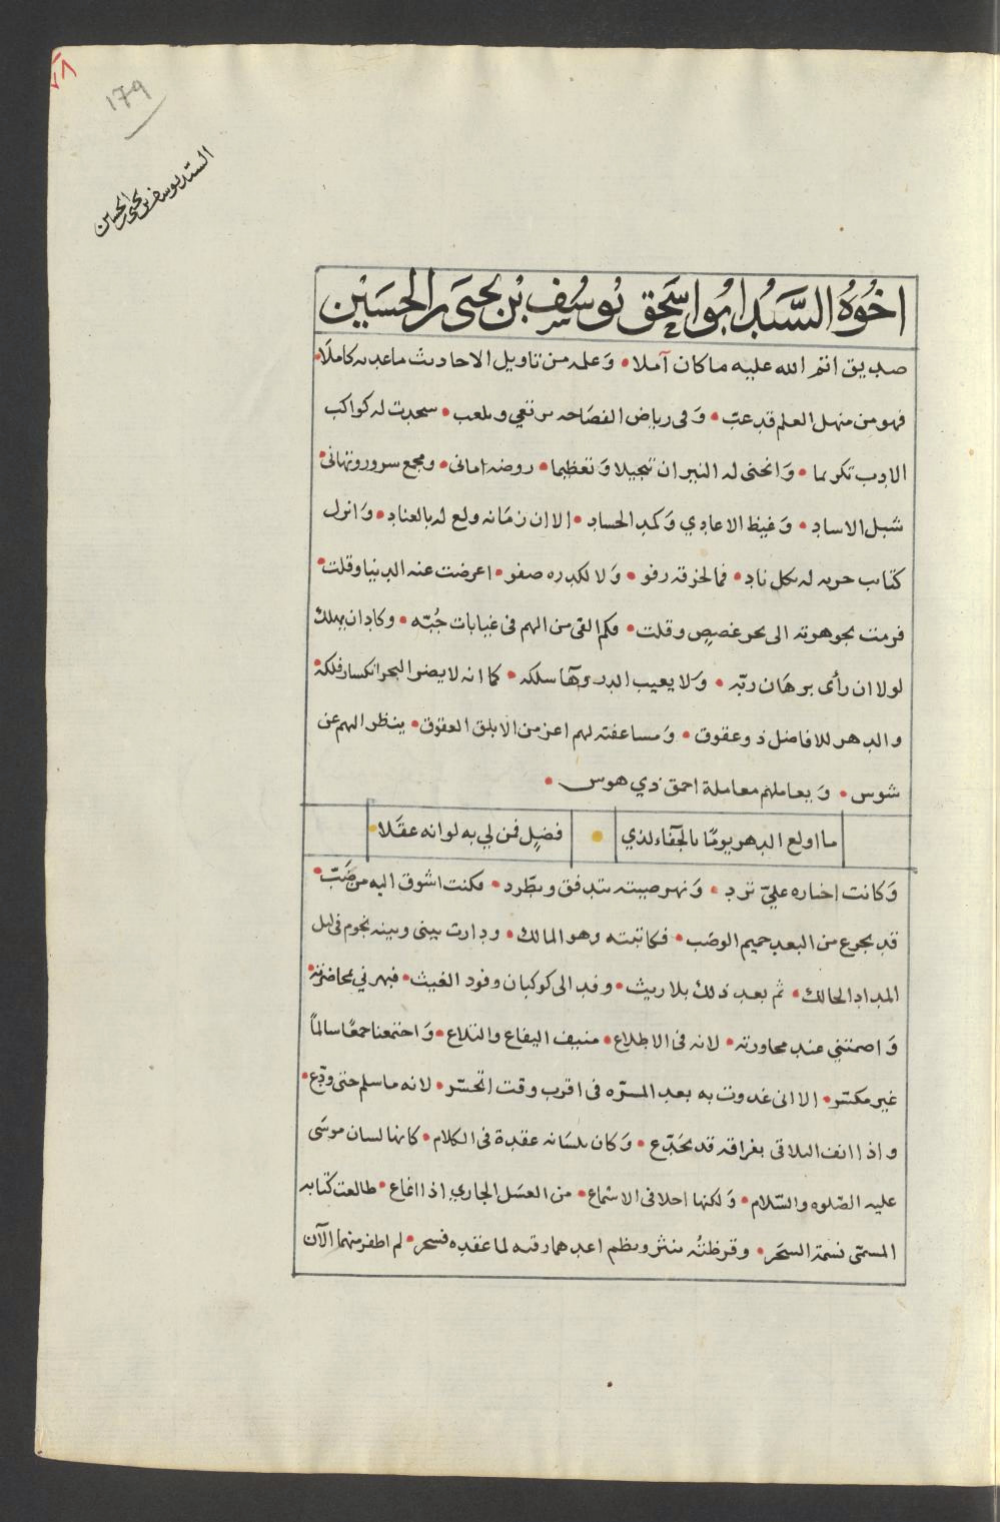 ٧٨
179
السيد يوسف بن يحيى بن الحسين
اخوه السيد ابو اسحق يوسف بن يحيى بن الحسين
صديق اتم الله عليه ما كان آملا • وعلمه من تاويل الاحاديث ما عدبه كاملا •
فهو من منهل العلم قد عبّ • وفى رياض الفصاحه يرتعي ويلعب • سجدت له كواكب
الادب تكريما • وانحنى له النيران تبجيلا وتعظيما • روضه امانى • ومجمع سرور وتهانى •
شبل الاساد • وغيظ الاعادي وكمد الحساد • الا ان زمانه ولع له بالعناد • وانزل
كتاب حربه له بكل ناد • فما لخرقه رفو • ولا لكدره صفو • اعرضت عنه الدنيا وقلت •
فرمت بجوهرته الى بحر غصص وقلت • فكم القى من الهم فى غيابات جُبّه • وكاد ان يهلك
لولا ان رأى برهان ربّه • ولا يعيب الدر وهآ سلكه • كما انه لا يضر البحر انكسار فلكه •
والدهر للافاضل ذو عقوق • ومساعفته لهم اعز من الابلق العقوق • ينظر اليهم عن
شوس • ويعاملهم معاملة احمق ذي هوس •
ما اولع الدهر يومًا بالجفاء لذي • فضلٍ فمن لي به لو انه عقلا •
وكانت اخباره عليّ ترد • ونهر صيته يتدفق ويطّرد • فكنت اشوق اليه من صَبّ •
قد تجرع من البعد حميم الوصب • فكاتبته وهو المالك • ودارت بينى وبينه نجوم فى ليل
المداد الحالك • ثم بعد ذلك بلا ريث • وفد الى كوكبان وفود الغيث • فبهرني بمحاضرته •
واصمتني عند محاورته • لانه فى الاطلاع • منيف اليفاع والتلاع • واجتمعنا جمعًا سالمًا
غير مكسّر • الا انى غدوت به بعد المسرّه فى اقرب وقت اتحسّر • لانه ما سلم حتى ودّع •
واذا انف التلاقى بفراقه قد تجدّع • وكان بلسانه عقدة فى الكلام • كانها لسان موسى
عليه الصلوه والسّلام • ولكنها احلا فى الاسماع • من العسل الجاري اذا اماع • طالعت كتابه
المسمّى نسمة السحر • وقرظتُه بنثر ونظم اعدهما رقيه لما عقده فسحر • لم اظفر منهما الآن